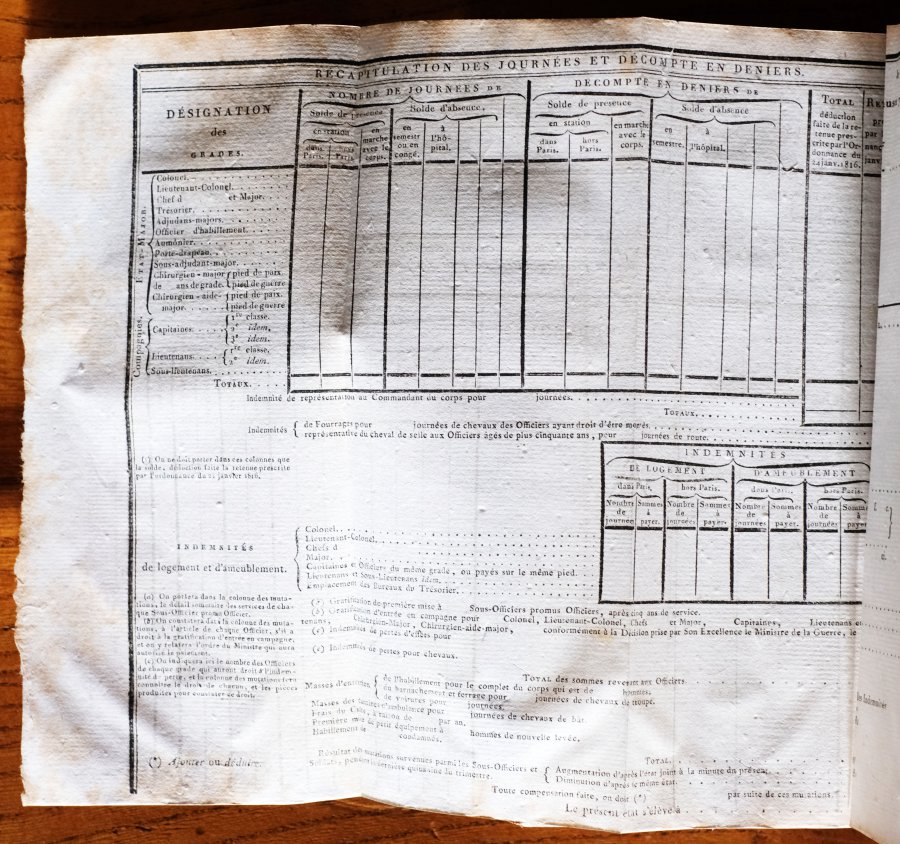 RÉCAPITULATION DES JOURNÉES ET DÉCOMPTE EN DENIERS.
DÉSIGNATION
des
GRADES.
NOMBRE DE JOURNÉES DE
Solde de présence
en station
dans Paris.
hors Paris.
en marche avec le corps.
Solde d'absence.
en semestre ou en congé.
à l'hôpital.
DÉCOMPTE EN DENIERS DE
Solde de présence
en station
dans Paris.
hors Paris.
en marche avec le corps.
Solde d'absence
en semestre.
à l'hôpital.
TOTAL
déduction
faite de la re-
tenue pres-
crite par l'Or-
donnance du
24 janv. 1816.
ÉTAT-MAJOR.
Colonel.
Lieutenant-Colonel.
Chef d et Major.
Trésorier.
Adjudans-majors.
Officier d'habillement.
Aumônier.
Porte-drapeau.
Sous-adjudant-major.
Chirurgien-major pied de paix.
de ans de grade. pied de guerre
Chirurgien-aide- pied de paix.
major. pied de guerre
Compagnies.
Capitaines. 1re classe.
2e idem.
3e idem.
Lieutenans. 1re classe.
2e idem.
Sous-lieutenans.
TOTAUX.
Indemnité de représentation au Commandant du corps pour journées.
TOTAUX.
Indemnités de Fourrages pour journées de chevaux des Officiers ayant droit d'être montés.
représentative du cheval de selle aux Officiers âgés de plus cinquante ans, pour journées de route.
(1) On ne doit porter dans ces colonnes que
la solde, déduction faite la retenue prescrite
par l'ordonnance du 24 janvier 1816.
INDEMNITÉS
DE LOGEMENT
D'AMEUBLEMENT
dans Paris.
hors Paris.
dans Paris.
hors Paris.
Nombre de journées
Sommes à payer.
Nombre de journées
Sommes à payer.
Nombre de journées
Sommes à payer.
Nombre de journées
INDEMNITÉS
de logement et d'ameublement.
Colonel.
Lieutenant-Colonel.
Chefs d
Major.
Capitaines et Officiers du même grade, ou payés sur le même pied.
Lieutenans et Sous-Lieutenans idem.
Emplacement des Bureaux du Trésorier.
(a) On portera dans la colonne des muta-
tions, le détail sommaire les services de cha-
que Sous-Officier promu Officier.
(b) On constatera dans la colonne des muta-
tions, à l'article de chaque Officier, s'il a
droit à la gratification d'entrée en campagne,
et on y relatera l'ordre du Ministre qui aura
autorisé le paiement.
(c) On indiquera ici le nombre des Officiers
de chaque grade qui auront droit à l'indem-
nité de perte, et la colonne des mutations fera
connaître le droit de chacun, et les pièces
produites pour constater ce droit.
(a) Gratification de première mise à Sous-Officiers promus Officiers, après cinq ans de service.
(b) Gratification d'entrée en campagne pour Colonel, Lieutenant-Colonel, Chefs et Major, Capitaines, Lieutenans et
tenans, Chirurgien-Major, Chirurgien-aide-major, conformément à la Décision prise par Son Excellence le Ministre de la Guerre, le
(c) Indemnités de pertes d'effets pour
(c) Indemnités de pertes pour chevaux.
TOTAL des sommes revenant aux Officiers.
Masses d'entretien de l'habillement pour le complet du corps qui est de hommes.
du harnachement et ferrage pour journées de chevaux de troupe.
de voitures pour journées.
d'ambulance pour journées de chevaux de bât.
Frais du Culte, à raison de par an.
Première mise de petit équipement à hommes de nouvelle levée.
Habillement de condamnés.
TOTAL.
Résultat des mutations survenues parmi les Sous-Officiers et
Augmentation d'après l'état joint à la minute du présent.
Diminution d'après le même état.
Toute compensation faite, on doit (*) par suite de ces mutations.
Le présent état s'élève à
(*) Ajouter ou déduire.